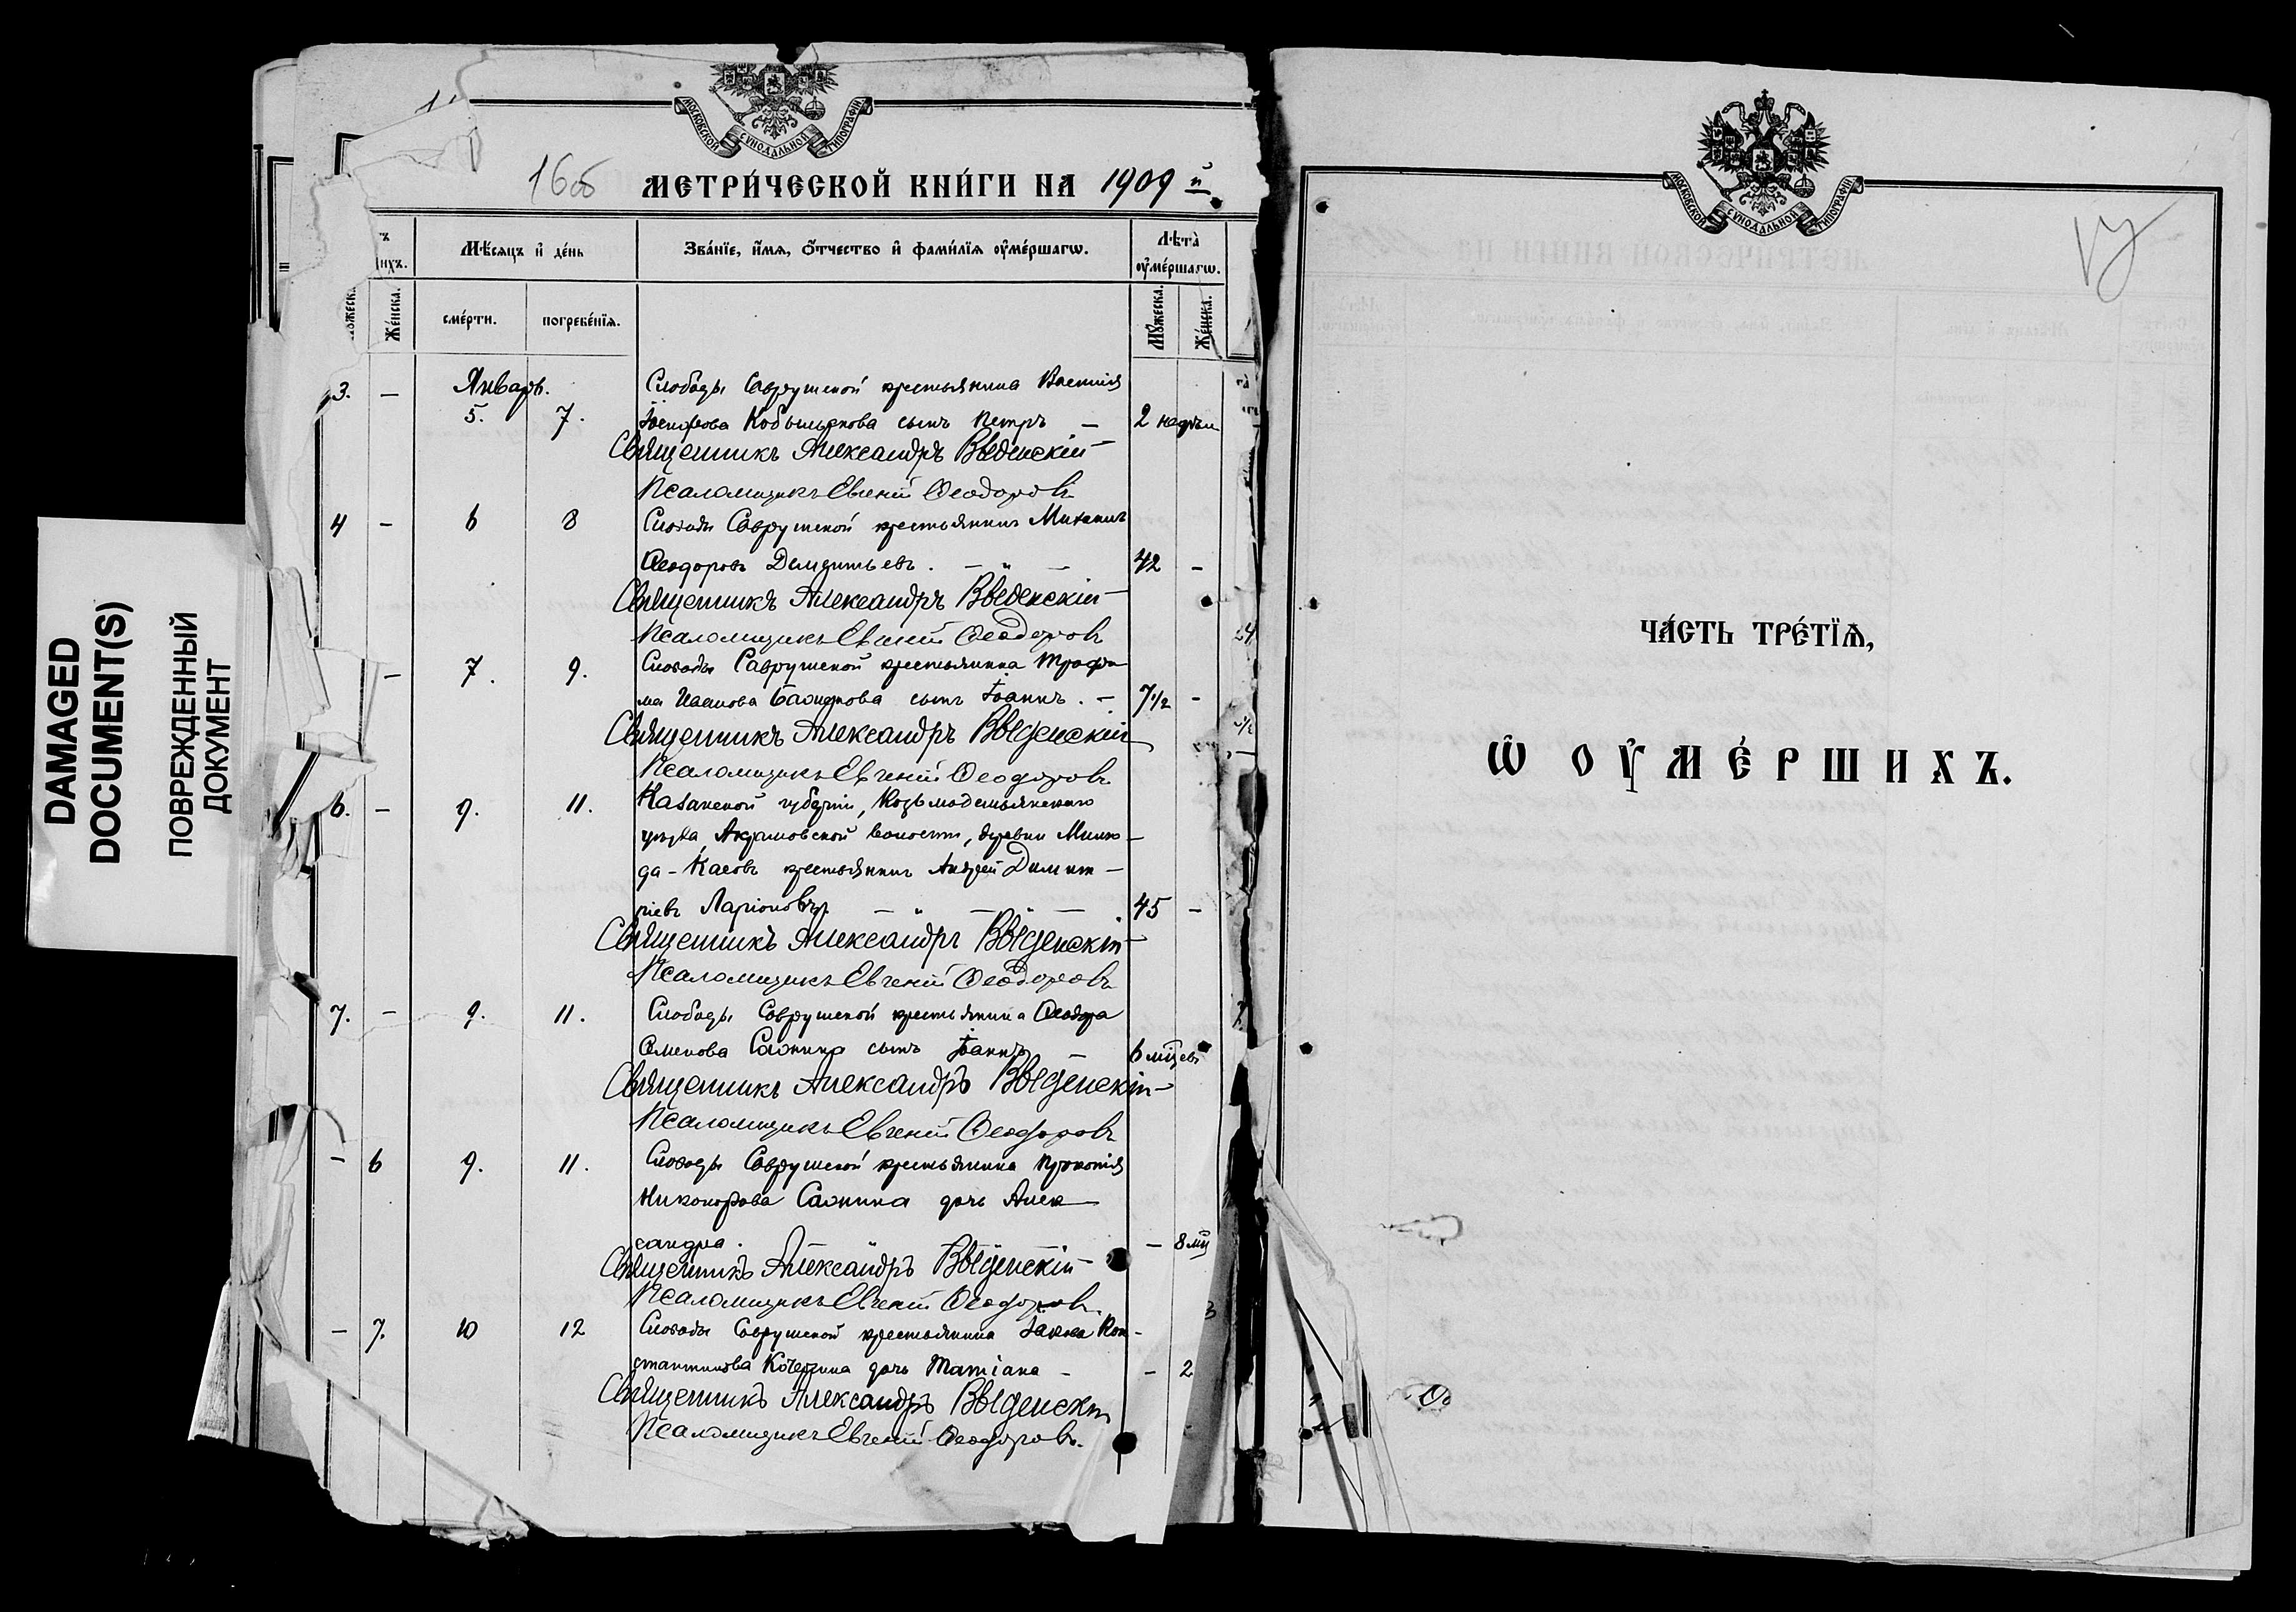 DAMAGED
DOCUMENT(S)
ПОВРЕЖДЕННЫЙ
ДОКУМЕНТ
МОСКОВСКОЙ СѴНОДАЛЬНОЙ ТИПОГРАФІИ
16об МЕТРИ́ЧЕСКОЙ КНИ́ГИ НА 1909 й
Мѣ́сяцъ и҆ де́нь
Зва́нїе, и҆́мѧ, ѻ҆́тчество и҆ фами́лїѧ ᲂу҆ме́ршагѡ.
Лѣта̀ ᲂу҆ме́ршагѡ.
Же́нска.
сме́рти.
погребе́нїѧ.
Мꙋ́жеска.
Же́нска.
3. — Январь. Слободы Саврушской крестьянина Василія
5. 7. Іосифова сынъ Петръ — 2 недѣли
Священникъ Александръ Введенскій
Псаломщикъ Евгеній Ѳеодоровъ
4 — 6 8 Слободы Саврушской крестьянинъ Михаилъ
Ѳеодоровъ Дементьевъ. — „ — 42 —
Священникъ Александръ Введенскій
Псаломщикъ Евгеній Ѳеодоровъ
— 7. 9. Слободы Саврушской крестьянина Трофи
ма Иванова сынъ Іоаннъ. — 7 1/2 —
Священникъ Александръ Введенскій
Псаломщикъ Евгеній Ѳеодоровъ
6. — 9. 11. Казанской губерніи, Козьмодемьянскаго
уѣзда, Акрамовской волости, деревни
крестьянинъ Андрей Димит—
ріевъ Ларіоновъ. — „ — „ — 45 —
Священникъ Александръ Введенскій
Псаломщикъ Евгеній Ѳеодоровъ
7. — 9. 11. Слободы Саврушской крестьянина Ѳеодора
Семенова Салнина сынъ Іоаннъ — 6 мцевъ
Священникъ Александръ Введенскій
Псаломщикъ Евгеній Ѳеодоровъ
— 6 9. 11. Слободы Саврушской крестьянина Прокопія
Никонорова Салнина дочь Алек—
сандра. — 8 мц
Священникъ Александръ Введенскій
Псаломщикъ Евгеній Ѳеодоровъ.
— 7. 10 12 Слободы Саврушской крестьянина Іакова Кон-
стантинова Кочергина дочь Татіана — — 2
Священникъ Александръ Введенскій
Псаломщикъ Евгеній Ѳеодоровъ.
МОСКОВСКОЙ СѴНОДАЛЬНОЙ ТИПОГРАФІИ
17
ЧА́СТЬ ТРЕ́ТЇѦ,
Ѡ҆ ОУ҆МЕ́РШИХЪ.